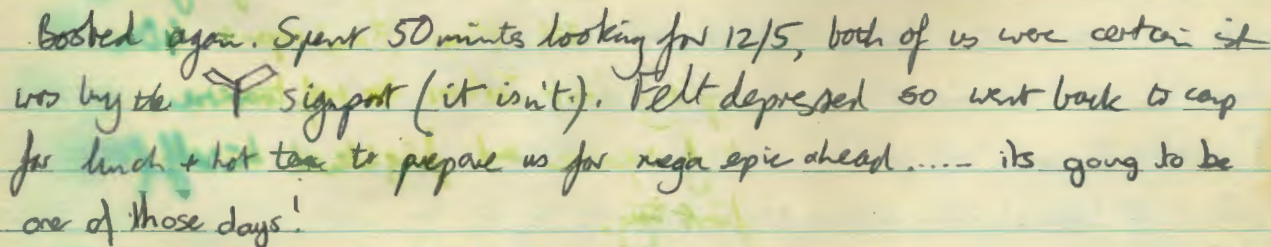 Boobed again. Spent 50 mints looking for 12/5, both of us were certain it
was by the signpost (it isn't.). Felt depressed so went back to camp
for lunch + hot tea to prepare us for mega epic ahead..... its going to be
one of those days!